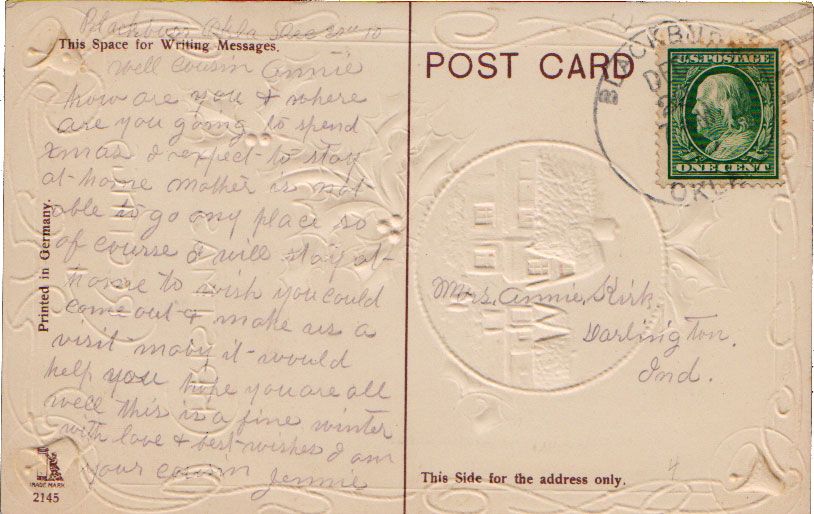 Blackburn Okla Dec 20th 10
This Space for Writing Messages.
well cousin Annie
how are you & where
are you going to spend
Xmas I expect to stay
at home mother is not
able to go any place so
of course I will stay at
home to wish you could
come out & make us a
visit maby it would
help you hope you are all
well this is a fine winter
with love & best wishes I am
your cousin Jennie
Printed in Germany.
IMAGE MARK
2145
POST CARD
BLACKBURN
DE
OKLA
U.S. POSTAGE
ONE CENT
Mrs, Annie, Kirk
Darlington.
Ind.
This Side for the address only.
4